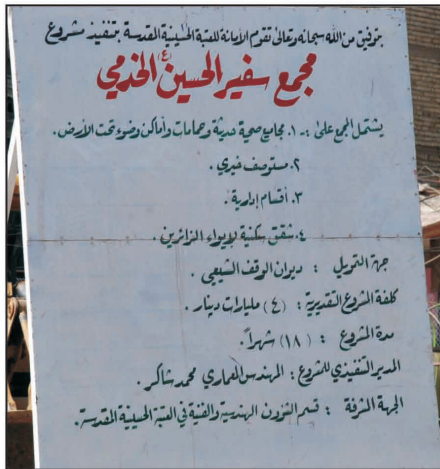 بتوفيق من الله سبحانه وتعالى تقوم الأمانة للعتبة الحسينية المقدسة بتنفيذ مشروع
مجمع سفير الحسين (ع) الخدمي
يشتمل المجمع على :- ١. مجاميع صحية حديثة وحمامات وأماكن وضوء تحت الأرض.
٢. مستوصف خيري .
٣. أقسام إدارية .
٤. شقق سكنية لإيواء الزائرين .
جهة التمويل : ديوان الوقف الشيعي .
كلفة المشروع التقديرية : (٤) مليارات دينار .
مدة المشروع : (١٨) شهراً .
المدير التنفيذي للمشروع : المهندس المعماري محمد شاكر .
الجهة المشرفة : قسم الشؤون الهندسية والفنية في العتبة الحسينية المقدسة .